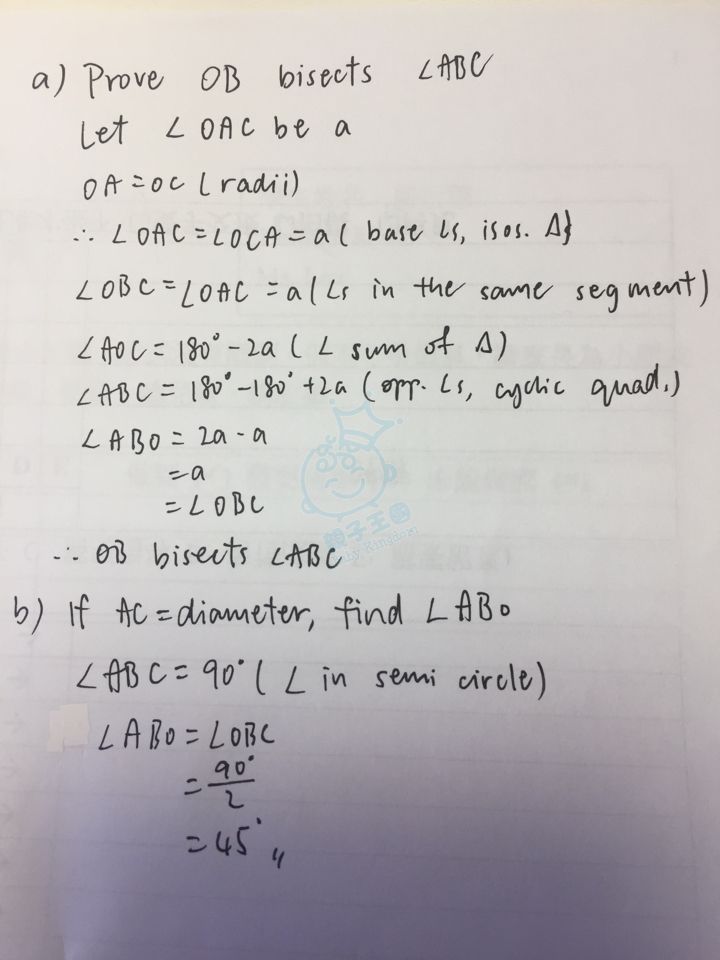 a) Prove OB bisects ∠ABC
Let ∠OAC be a
OA = OC (radii)
∴ ∠OAC = ∠OCA = a ( base ∠s, isos. Δ)
∠OBC = ∠OAC = a (∠s in the same segment)
∠AOC = 180° - 2a ( ∠ sum of Δ)
∠ABC = 180° - 180° + 2a (opp. ∠s, cyclic quad.)
∠ABO = 2a - a
= a
= ∠OBC
親子王國
∴ OB bisects ∠ABC
b) If AC = diameter, find ∠ABO
∠ABC = 90° ( ∠ in semi circle)
∠ABO = ∠OBC
= 90°/2
= 45°